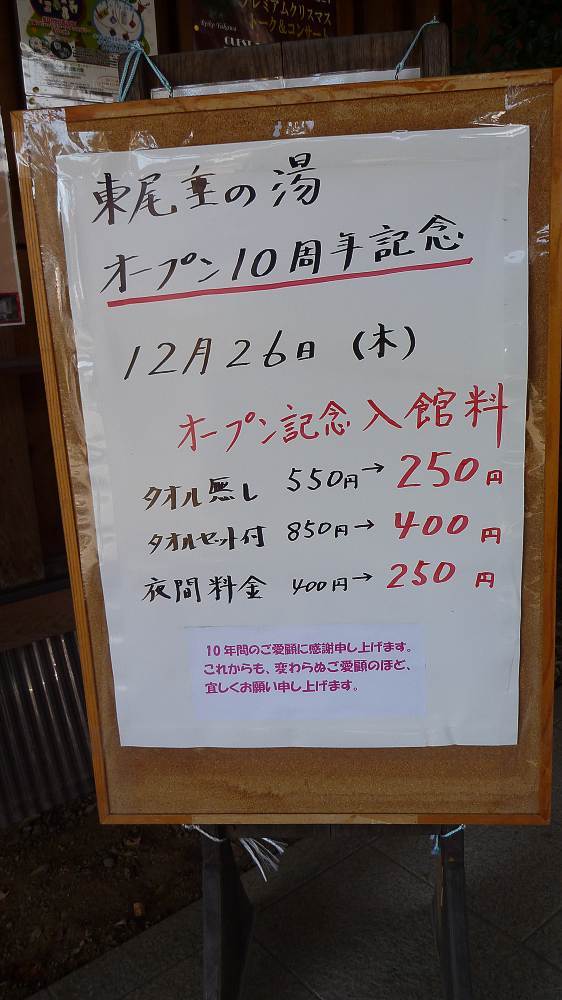 プレミアムクリスマス
トーク&コンサート
東尾重の湯
オープン10周年記念
12月26日(木)
オープン記念入館料
タオル無し 550円→250円
タオルセット付 850円→400円
夜間料金 400円→250円
10年間のご愛顧に感謝申し上げます。
これからも、変わらぬご愛顧のほど、
宜しくお願い申し上げます。